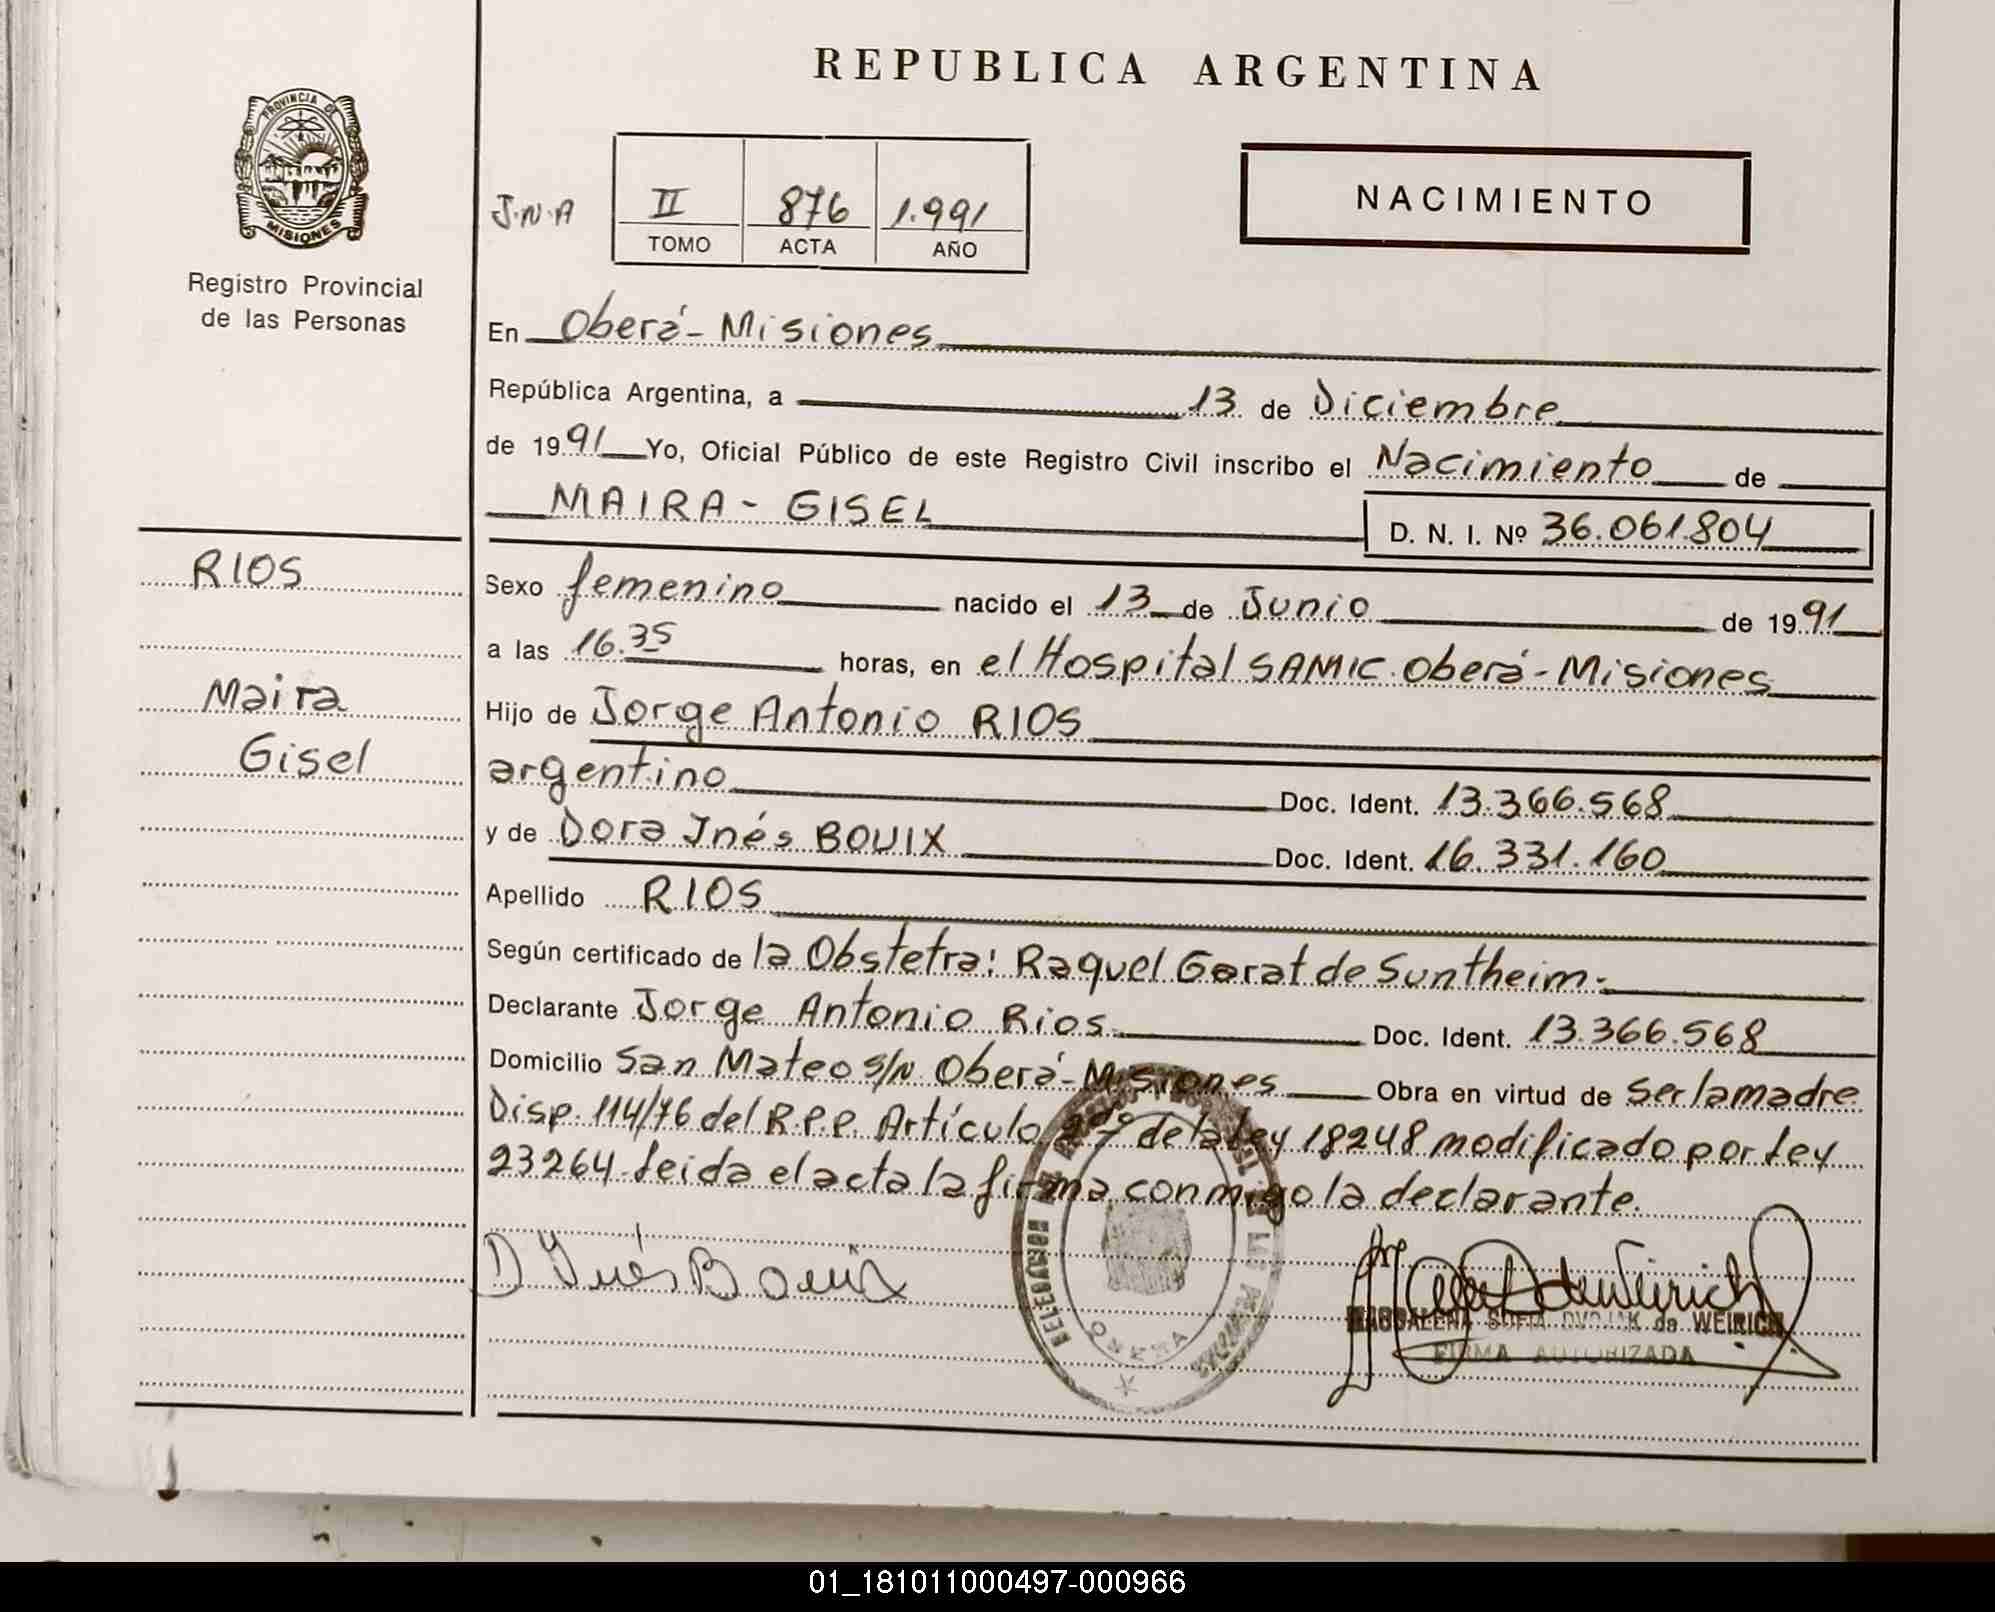 REPUBLICA ARGENTINA
PROVINCIA DE
MISIONES
Registro Provincial
de las Personas
J.N.A
II 876 1.991
TOMO ACTA AÑO
NACIMIENTO
En Oberá - Misiones
República Argentina, a 13 de Diciembre
de 1991 Yo, Oficial Público de este Registro Civil inscribo el Nacimiento de
MAIRA - GISEL
D. N. I. Nº 36.061.804
RIOS
Maira
Gisel
Sexo femenino nacido el 13 de Junio de 1991
a las 16.35 horas, en el Hospital SAMIC. Oberá - Misiones
Hijo de Jorge Antonio RIOS
argentino Doc. Ident. 13.366.568
y de Dora Inés BOUIX Doc. Ident. 16.331.160
Apellido RIOS
Según certificado de la Obstetra: Raquel Garat de Suntheim.
Declarante Jorge Antonio Rios Doc. Ident. 13.366.568
Domicilio San Mateo s/n Oberá - Misiones Obra en virtud de Ser la madre
Disp. 114/76 del R.P.P. Artículo 2º de la Ley 18248 modificado por Ley
23264. Leida el acta la firma conmigo la declarante.
D Inés Bouix
MAGDALENA SOFIA DVOJAK de WEIRICH
FIRMA AUTORIZADA
01_181011000497-000966